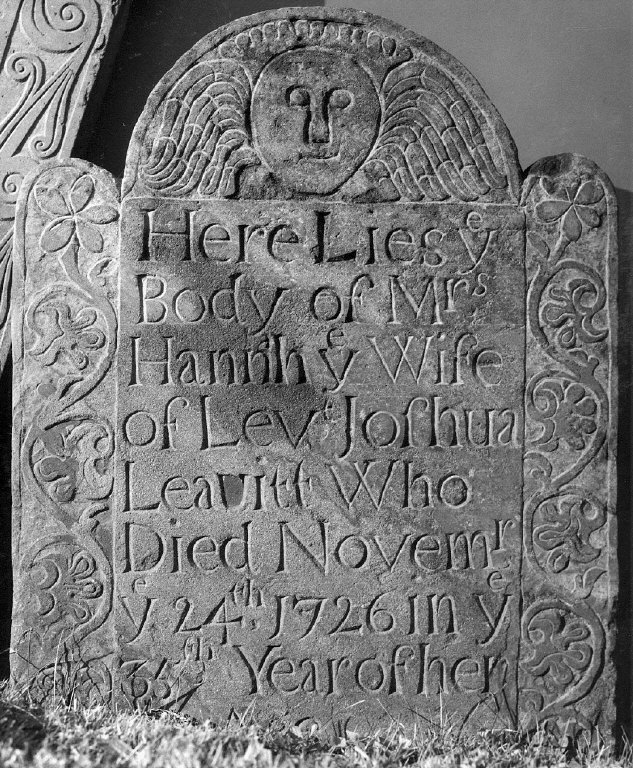 Here Lies yᵉ
Body of Mrˢ
Hannah yᵉ Wife
of Levᵉ Joſhua
Leavitt Who
Died Novemʳ
yᵉ 24ᵗʰ 1726 in yᵉ
36ᵗʰ Year of her